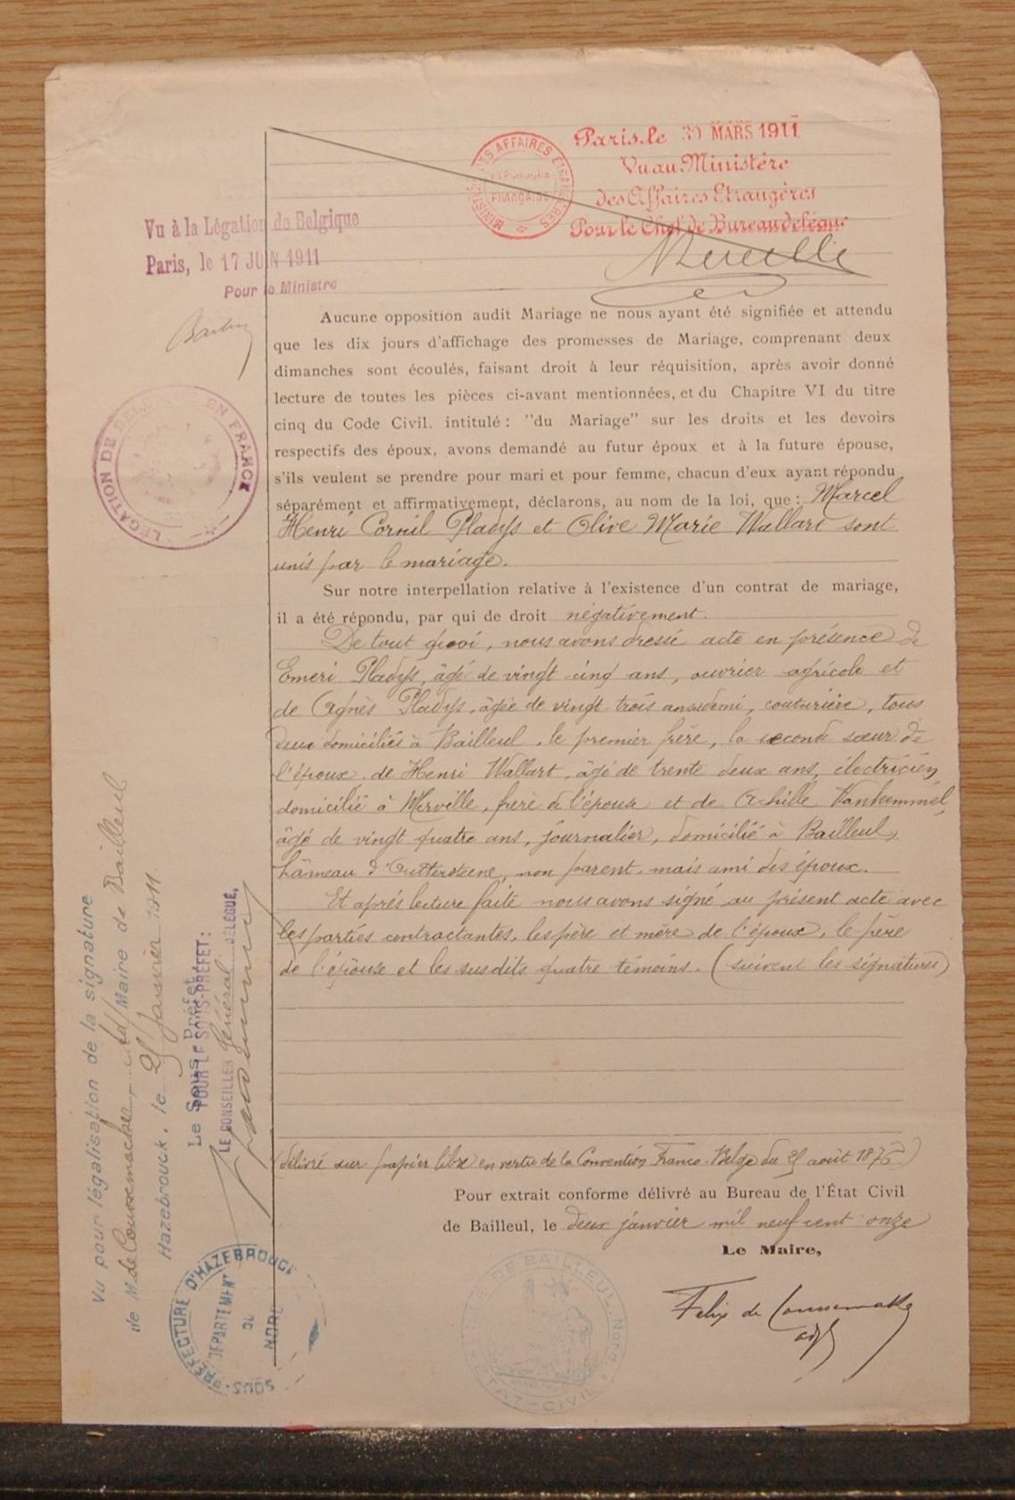 Paris, le 30 MARS 1911
Vu au Ministère
des Affaires Etrangères
Pour le Chef de Bureau délégué
MINISTÈRE DES AFFAIRES ETRANGÈRES
FRANÇAISE
Vu à la Légation de Belgique
Paris, le 17 JUIN 1911
Pour le Ministre
LÉGATION DE BELGIQUE EN FRANCE
Aucune opposition audit Mariage ne nous ayant été signifiée et attendu
que les dix jours d'affichage des promesses de Mariage, comprenant deux
dimanches sont écoulés, faisant droit à leur réquisition, après avoir donné
lecture de toutes les pièces ci-avant mentionnées, et du Chapitre VI du titre
cinq du Code Civil. intitulé : "du Mariage" sur les droits et les devoirs
respectifs des époux, avons demandé au futur époux et à la future épouse,
s'ils veulent se prendre pour mari et pour femme, chacun d'eux ayant répondu
séparément et affirmativement, déclarons, au nom de la loi, que : Marcel
Henri Cornil Pladys et Olive Marie Wallart sont
unis par le mariage.
Sur notre interpellation relative à l'existence d'un contrat de mariage,
il a été répondu, par qui de droit négativement.
De tout quoi, nous avons dressé acte en présence de
Emeri Pladys, âgé de vingt cinq ans, ouvrier agricole et
de Agnès Pladys, âgée de vingt trois ans demi, couturière, tous
deux domiciliés à Bailleul, le premier frère, la seconde sœur de
l'époux, de Henri Wallart, âgé de trente deux ans, électricien,
domicilié à Merville, frère de l'épouse et de Achille Vankemmel,
âgé de vingt quatre ans, journalier, domicilié à Bailleul,
hameau d'Outtersteene, non parent, mais ami des époux.
Et après lecture faite nous avons signé au présent acte avec
les parties contractantes, les père et mère de l'époux, le père
de l'épouse et les susdits quatre témoins. (suivent les signatures)
(délivré sur papier libre en vertu de la Convention Franco-Belge du 25 août 1876)
Pour extrait conforme délivré au Bureau de l'État Civil
de Bailleul, le deux janvier mil neuf cent onze
Le Maire,
Felix de Coussemaker
adjt
VILLE DE BAILLEUL (Nord)
ETAT-CIVIL
Vu pour légalisation de la signature
de M. de Coussemaker adjt Maire de Bailleul
Hazebrouck, le 25 Janvier 1911.
Le Sous-Préfet
POUR LE SOUS-PRÉFET :
LE CONSEILLER Général DÉLÉGUÉ,
SOUS-PRÉFECTURE D'HAZEBROUCK
DÉPARTEMENT
DU
NORD